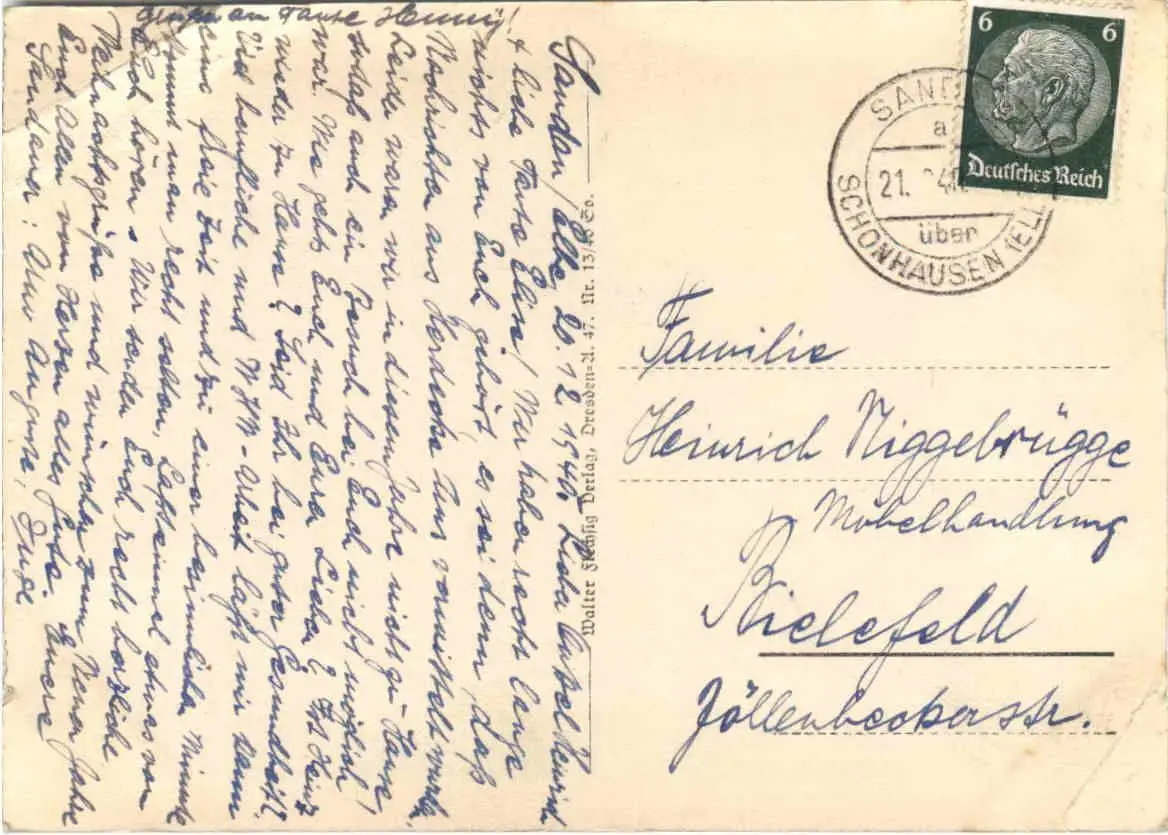 Sandau/Elbe, 20.12.1940. Liebe Onkel Heinrich
& liebe Tante Elise! Wir haben recht lange
nichts von Euch gehört, es sei denn, daß
Nachrichten aus Herdecke uns vermittelt wurden.
Leider waren wir in diesem Jahre nicht zu Hause,
sodaß auch ein Besuch bei Euch nicht möglich
war. Wie gehts Euch und Eure Lieben? Ist Heinz
wieder zu Hause? Seid Ihr bei guter Gesundheit?
Viel berufliche und -Arbeit läßt mir kaum
eine freie Zeit und zu einer besinnlichen Minute
kommt man recht selten. Laßt einmal etwas von
Euch hören. Wir senden Euch recht herzliche
Weihnachtsgrüße und wünschen zum Neuen Jahre
Euch Allen von Herzen alles Gute. Euere
Sandauer:
Grüße an Tante Henny!
Walter Flechsig Verlag, Dresden-A. 47. Nr. 13/ Co.
6 6
Deutsches Reich
SAND
a
21. 
über
SCHÖNHAUSEN (EL
Familie
Heinrich Niggebrügge
Möbelhandlung
Bielefeld
Jöllenbeckerstr.